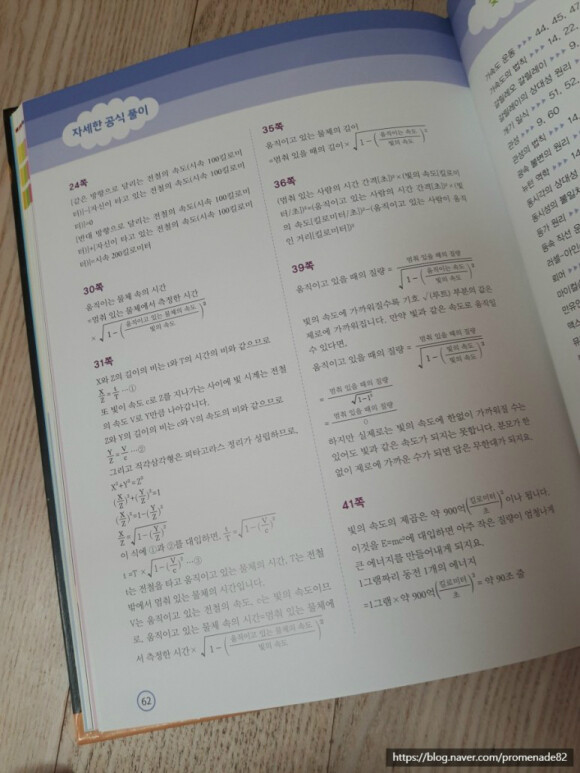 자세한 공식 풀이
24쪽
(같은 방향으로 달리는 전철의 속도(시속 100킬로미
터))-(자신이 타고 있는 전철의 속도(시속 100킬로미
터))=0
(반대 방향으로 달리는 전철의 속도(시속 100킬로미
터))+(자신이 타고 있는 전철의 속도(시속 100킬로미
터))=시속 200킬로미터
30쪽
움직이는 물체 속의 시간
=멈춰 있는 물체에서 측정한 시간
× √1-(움직이고 있는 물체의 속도/빛의 속도)²
31쪽
X와 Z의 길이의 비는 t와 T의 시간의 비와 같으므로
X/Z = t/T …①
또 빛이 속도 c로 Z를 지나가는 사이에 빛 시계는 전철
의 속도 V로 Y만큼 나아갑니다.
Z와 Y의 길이의 비는 c와 V의 속도의 비와 같으므로
Y/Z = V/c …②
그리고 직각삼각형은 피타고라스 정리가 성립하므로,
X²+Y²=Z²
(X/Z)²+(Y/Z)²=1
(X/Z)²=1-(Y/Z)²
X/Z=√1-(Y/Z)²
이 식에 ①과 ②를 대입하면, t/T=√1-(V/c)²
t=T × √1-(V/c)² …③
t는 전철을 타고 움직이고 있는 물체의 시간, T는 전철
밖에서 멈춰 있는 물체의 시간입니다.
V는 움직이고 있는 전철의 속도, c는 빛의 속도이므
로, 움직이고 있는 물체 속의 시간=멈춰 있는 물체에
서 측정한 시간× √1-(움직이고 있는 물체의 속도/빛의 속도)²
62
35쪽
움직이고 있는 물체의 길이
=멈춰 있을 때의 길이× √1-(움직이는 속도/빛의 속도)²
36쪽
(멈춰 있는 사람의 시간 간격[초])² × (빛의 속도[킬로미
터/초])²=(움직이고 있는 사람의 시간 간격[초])² × (빛
의 속도[킬로미터/초])²-(움직이고 있는 사람이 움직
인 거리[킬로미터])²
39쪽
움직이고 있을 때의 질량 = 멈춰 있을 때의 질량/√1-(움직이는 속도/빛의 속도)²
빛의 속도에 가까워질수록 기호 √(루트) 부분의 값은
제로에 가까워집니다. 만약 빛과 같은 속도로 움직일
수 있다면,
움직이고 있을 때의 질량 = 멈춰 있을 때의 질량/√1-(빛의 속도/빛의 속도)²
= 멈춰 있을 때의 질량/√1-1²
= 멈춰 있을 때의 질량/0
하지만 실제로는 빛의 속도에 한없이 가까워질 수는
있어도 빛과 같은 속도가 되지는 못합니다. 분모가 한
없이 제로에 가까운 수가 되면 답은 무한대가 되지요.
41쪽
빛의 속도의 제곱은 약 900억(킬로미터/초)²이나 됩니다.
이것을 E=mc²에 대입하면 아주 작은 질량이 엄청나게
큰 에너지를 만들어내게 되지요.
1그램짜리 동전 1개의 에너지
=1그램 × 약 900억(킬로미터/초)² = 약 90조 줄
가속도 운동 >>> 44, 45, 47
가속도의 법칙 >>> 14, 22,
갈릴레오 갈릴레이 >>> 9,
갈릴레이의 상대성 원리 >>>
>>> 51, 52,
>>> 9, 60
관성의 법칙 >>> 14,
광속 불변의 원리
뉴턴 역학 >>> 14
동시각의 상대성
동시성의 불일
등가 원리 >>>
등속 직선 운
https://blog.naver.com/promenade82